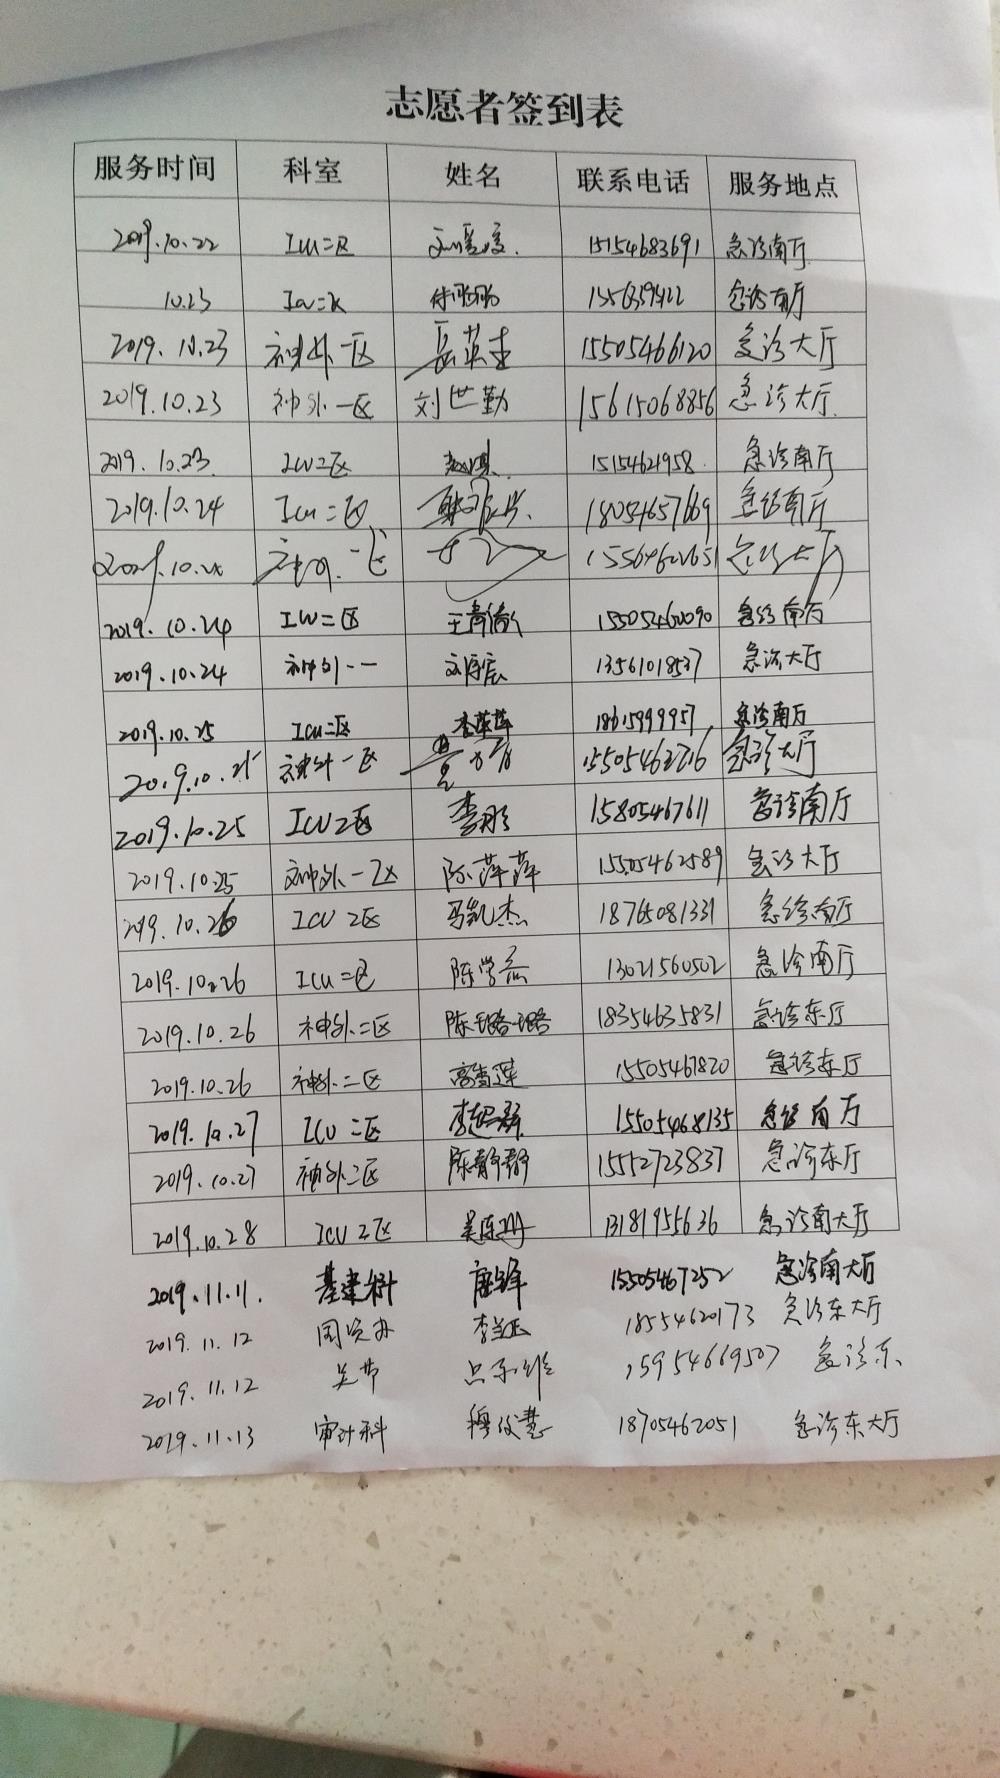 志愿者签到表
服务时间 科室 姓名 联系电话 服务地点
2019.10.22 ICU二区 15154683691 急诊南厅
10.23 ICU二区 急诊南厅
2019.10.23 神外一区 15505466120 急诊大厅
2019.10.23 神外一区 刘世勤 15615068856 急诊大厅
2019.10.23 ICU二区 15154621958 急诊南厅
2019.10.24 ICU二区 18054657669 急诊南厅
神外一区 急诊大厅
2019.10.24 ICU二区 王青倩 15505460090 急诊南厅
2019.10.24 神外一 13561018537 急诊大厅
2019.10.25 ICU二区 李萍萍 18615999957 急诊南厅
2019.10.25 神外一区 急诊大厅
2019.10.25 ICU2区 李彤 15805467611 急诊南厅
2019.10.25 神外一区 陈萍萍 15505462589 急诊大厅
2019.10.26 ICU 2区 马凯杰 18765081331 急诊南厅
2019.10.26 ICU二区 13021560502 急诊南厅
2019.10.26 神外二区 陈璐璐 18354635831 急诊东厅
2019.10.26 神外二区 高雪莲 15505467820 急诊东厅
2019.10.27 ICU二区 15505468135 急诊南厅
2019.10.27 神外二区 陈静静 15552723837 急诊东厅
2019.10.28 ICU 2区 13181955636 急诊南大厅
2019.11.11. 基建科 唐锋 15505467252 急诊南大厅
2019.11.12 国资办 18554620173 急诊东大厅
2019.11.12 15954669507 急诊东
2019.11.13 审计科 18705462051 急诊东大厅